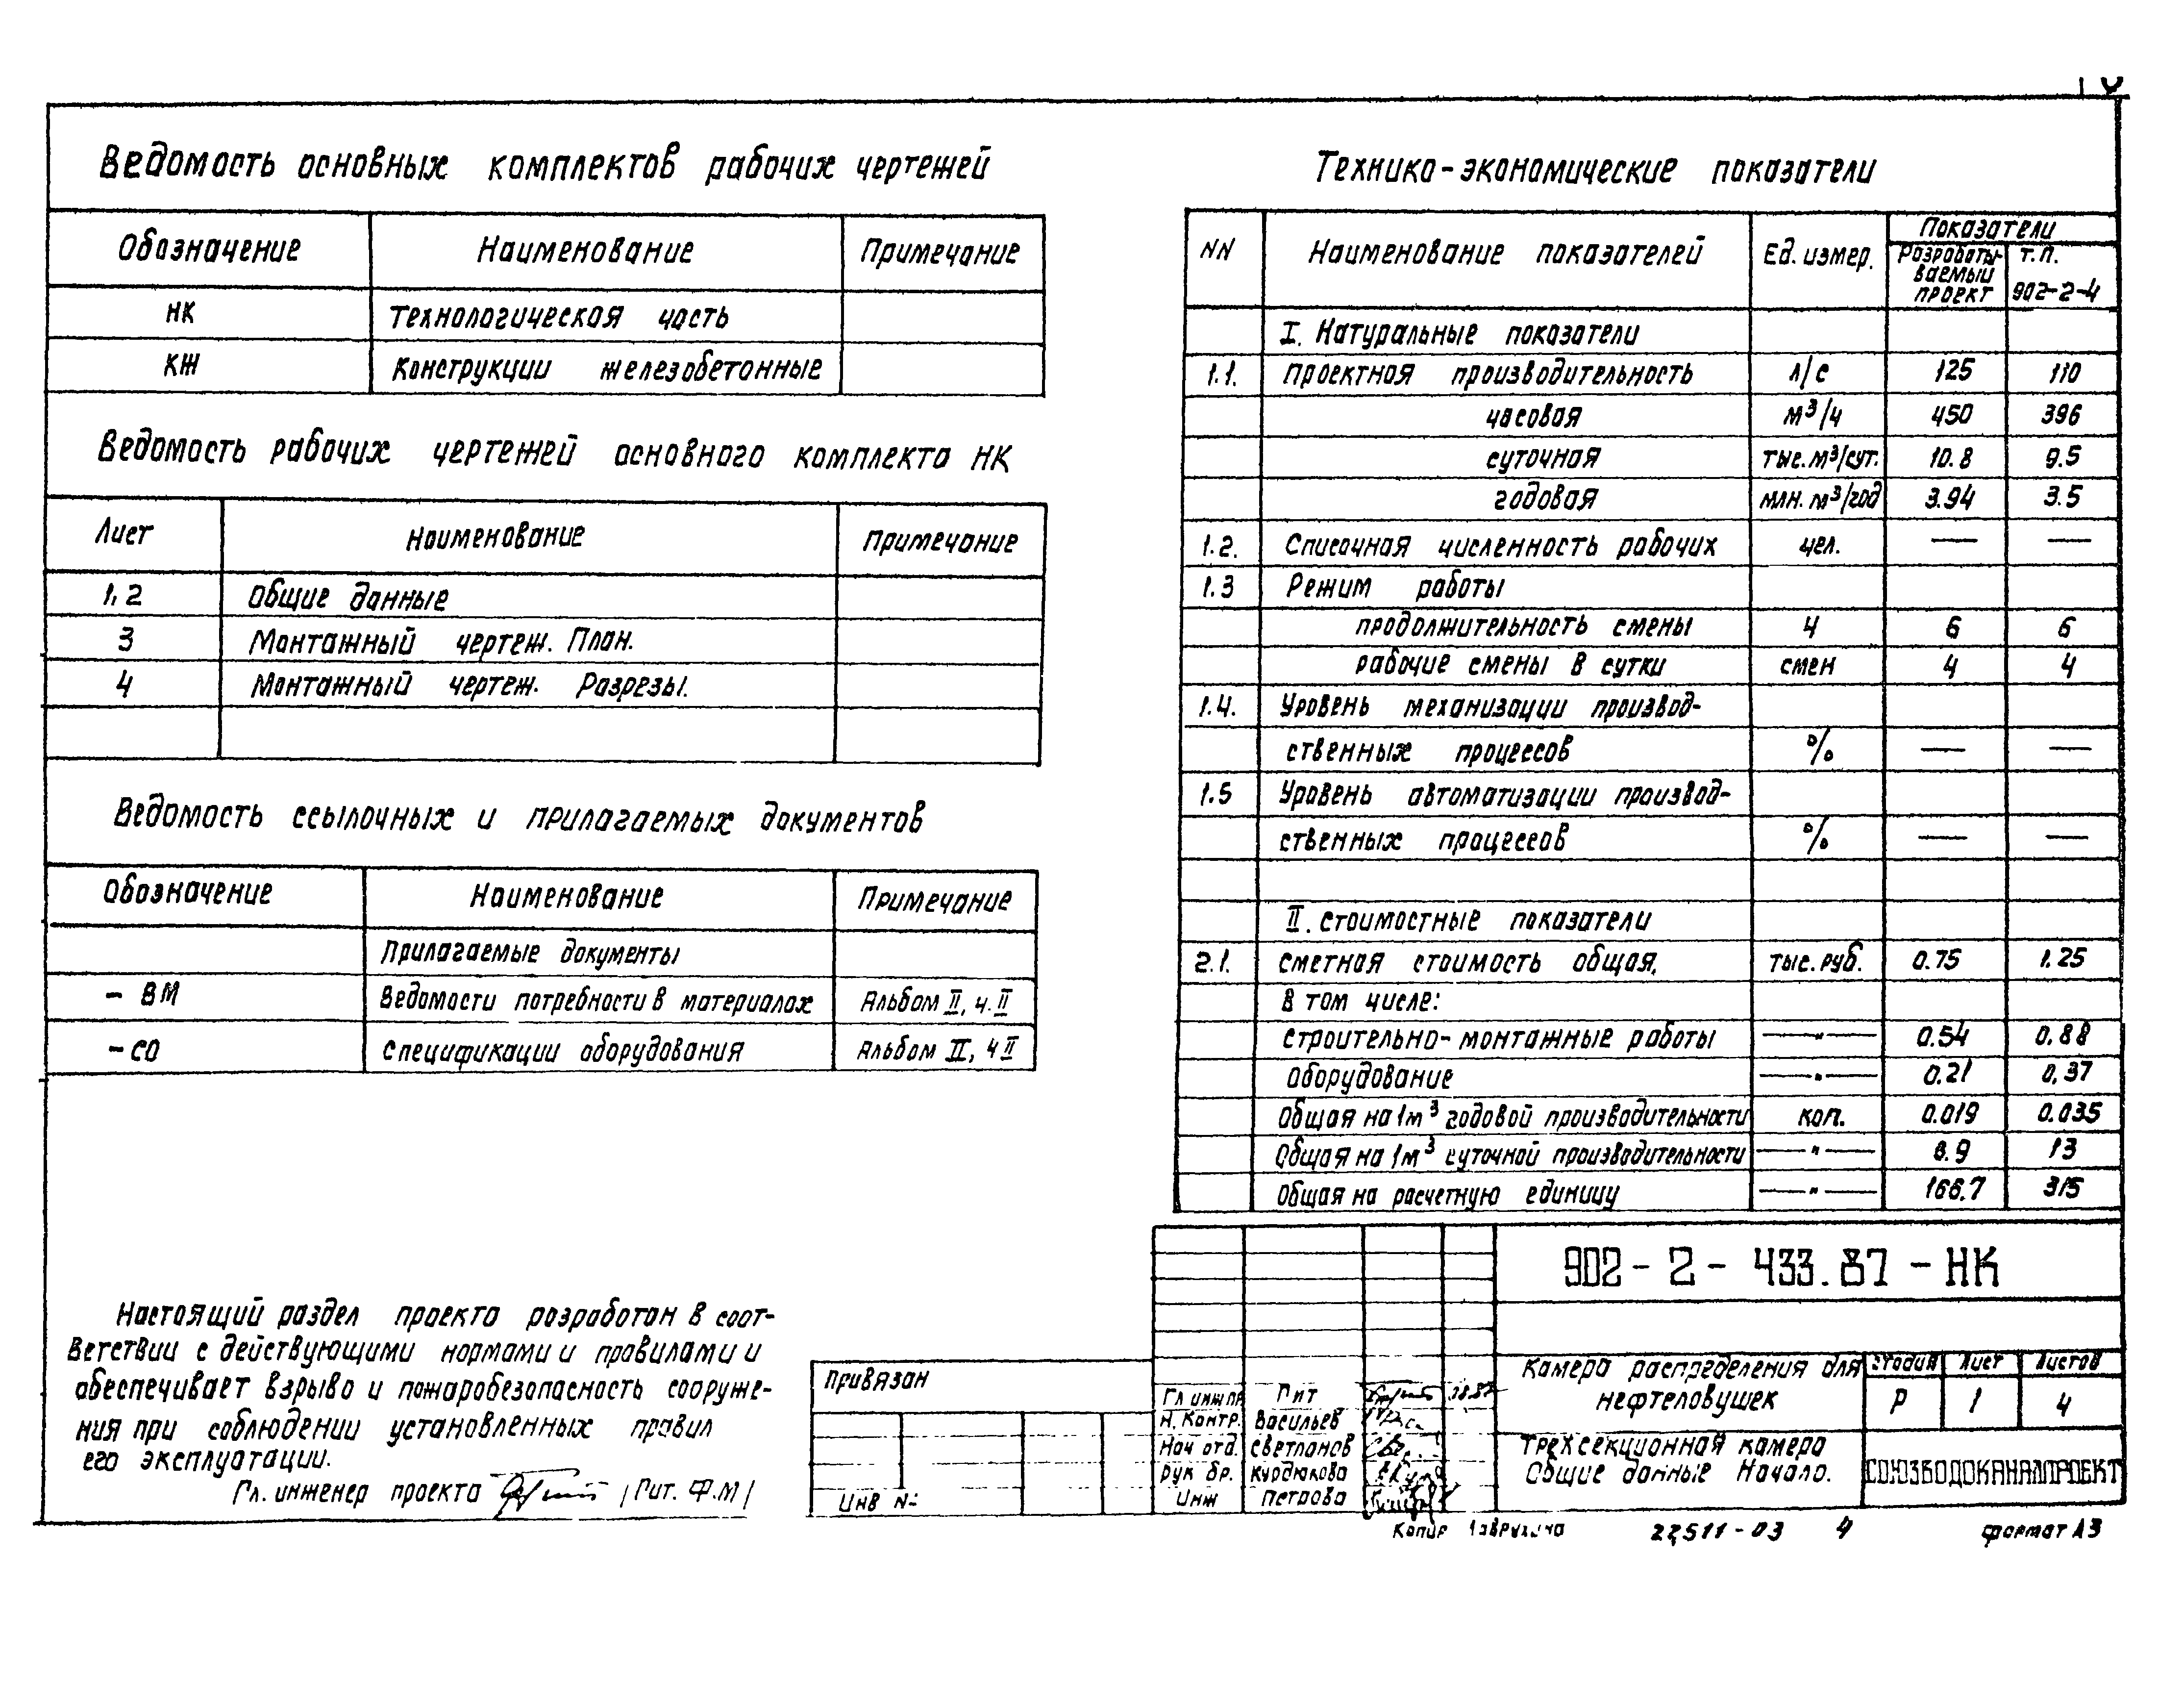 Ведомость основных комплектов рабочих чертежей
Обозначение Наименование Примечание
НК Технологическая часть
КЖ Конструкции железобетонные
Ведомость рабочих чертежей основного комплекта НК
Лист Наименование Примечание
1,2 Общие данные
3 Монтажный чертеж. План.
4 Монтажный чертеж. Разрезы.
Ведомость ссылочных и прилагаемых документов
Обозначение Наименование Примечание
Прилагаемые документы
- ВМ Ведомости потребности в материалах Альбом II, ч. II
- СО Спецификации оборудования Альбом II, ч II
Настоящий раздел проекта разработан в соот-
ветствии с действующими нормами и правилами и
обеспечивает взрыво и пожаробезопасность сооруже-
ния при соблюдении установленных правил
его эксплуатации.
Гл. инженер проекта /Пит. Ф.М/
Технико-экономические показатели
NN Наименование показателей Ед. измер. Показатели
Разрабаты-
ваемый
проект
т.п.
902-2-4
I. Натуральные показатели
1.1. Проектная производительность л/с 125 110
часовая м³/ч 450 396
суточная тыс. м³/сут. 10.8 9.5
годовая млн. м³/год 3.94 3.5
1.2. Списочная численность рабочих чел. — —
1.3 Режим работы
продолжительность смены ч 6 6
рабочие смены в сутки смен 4 4
1.4. Уровень механизации производ-
ственных процессов % — —
1.5 Уровень автоматизации производ-
ственных процессов % — —
II. Стоимостные показатели
2.1. Сметная стоимость общая, тыс. руб. 0.75 1.25
в том числе:
строительно-монтажные работы —"— 0.54 0.88
оборудование —"— 0.21 0.37
Общая на 1м³ годовой производительности коп. 0.019 0.035
Общая на 1м³ суточной производительности —"— 6.9 13
Общая на расчетную единицу —"— 166.7 315
902-2-433.87-НК
Камера распределения для
нефтеловушек
Стадия Лист Листов
Р 1 4
Трехсекционная камера
Общие данные Начало.
СОЮЗВОДОКАНАЛПРОЕКТ
Привязан
Инв №
Гл инж пр Пит
Н. Контр. Васильев
Нач отд. Светланов
Рук бр. Курдюкова
Инж Петрова
Копир
22511-03 4
формат А3